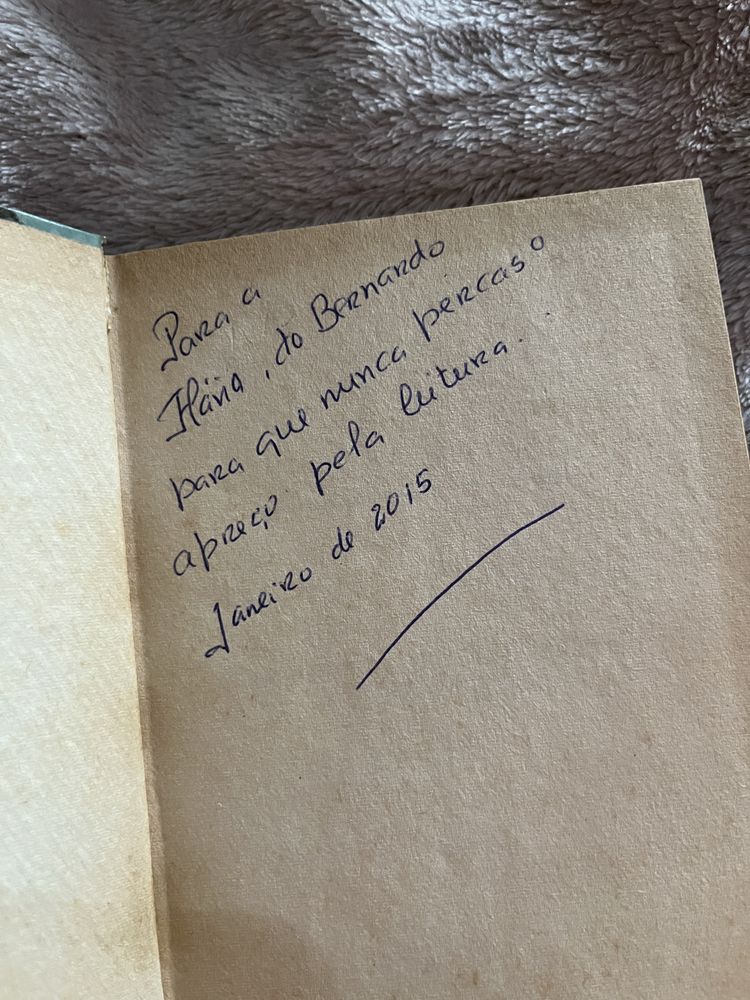 Para a
Flávia, do Bernardo
para que nunca percas o
apreço pela leitura.
Janeiro de 2015